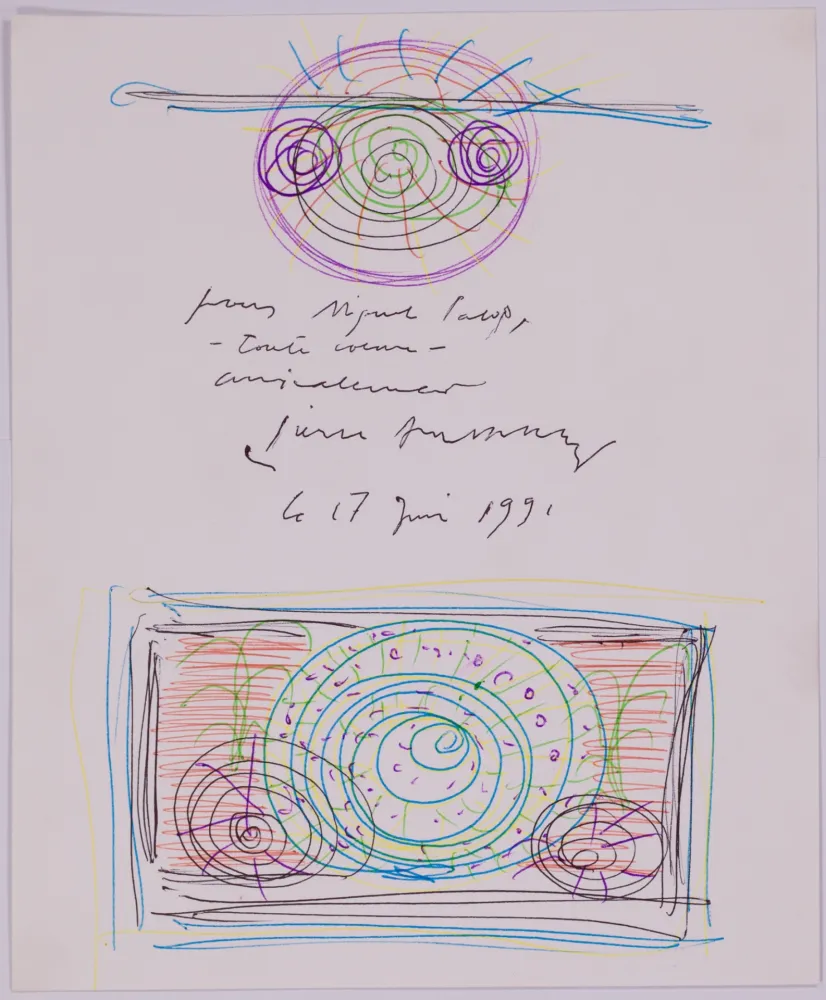 pour Miguel
- toute coeur -
amicalement
Pierre
le 17 Juin 1991